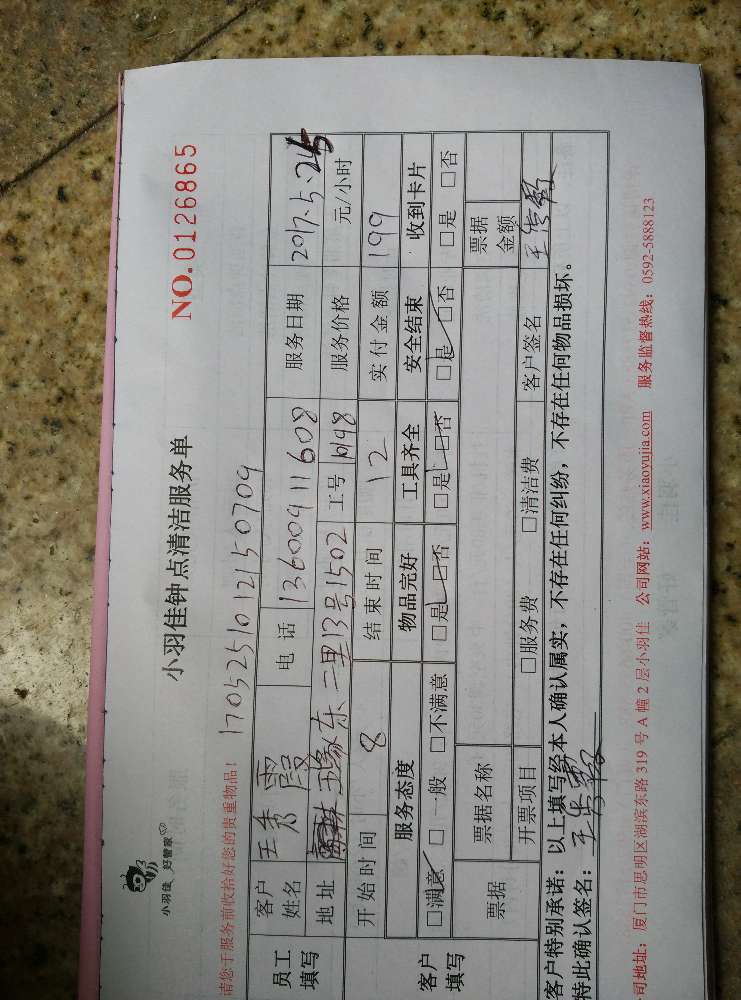 小羽佳 好管家
小羽佳钟点清洁服务单
NO.0126865
请您于服务前收拾好您的贵重物品！ 1705251012150709
员工填写 客户姓名 王秀霞 电话 13600911608 服务日期 2017.5.25
地址 东二里13号1502 工号 服务价格 元/小时
客户填写 开始时间 8 结束时间 12 实付金额 199
服务态度 物品完好 工具齐全 安全结束 收到卡片
□满意 □一般 □不满意 □是 □否 □是 □否 □是 □否 □是 □否
票据 票据名称 票据金额
开票项目 □服务费 □清洁费 客户签名
客户特别承诺：以上填写经本人确认属实，不存在任何纠纷，不存在任何物品损坏。
特此确认签名：
司地址：厦门市思明区湖滨东路319号A幢2层小羽佳 公司网站：www.xiaoyujia.com 服务监督热线：0592-5888123